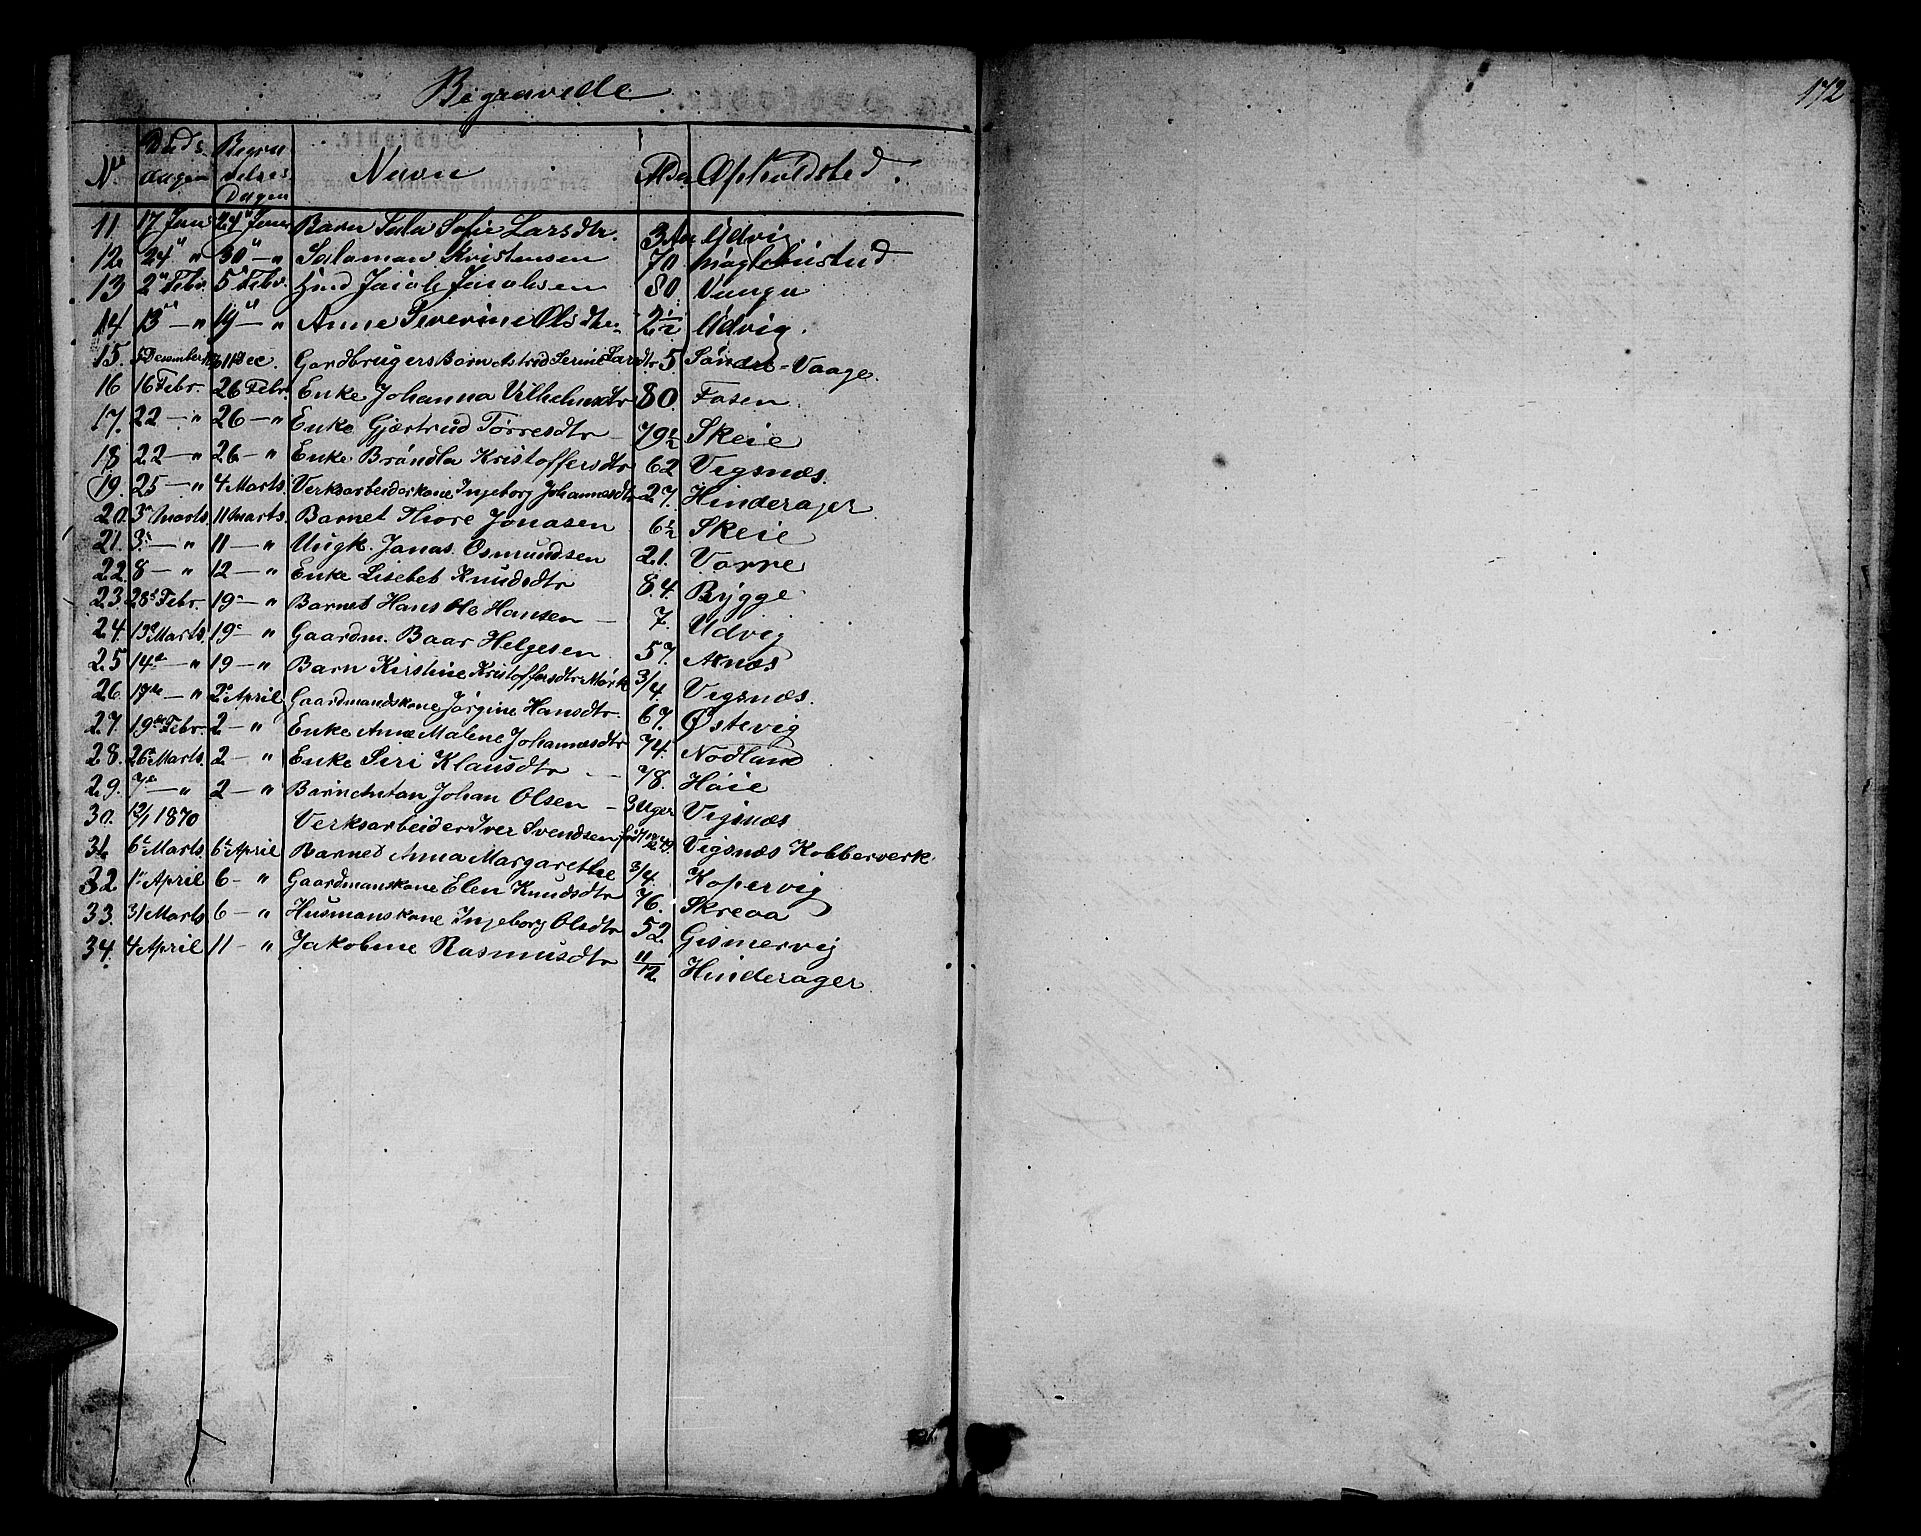 172
Begravede
No Døds dagen Begravelses Dagen Navn Alder Opholdsted.
11 17 Jan 24" Jan Barn Sofie Larsdtr. 3 Aar Udvig
12. 24" " 30" — " Salamon Kristensen 70
13 2" Febr 5" Febr. Jacob Jacobsen 80
14 13" — " 19" — " Anne Severine Olsdtr 2 1/2 Udvig.
15. 5 Desember 11 Dec. Gardbrugers Barn Astrid Serine Larsdtr 5 Søndre-Vaage.
16 16 Febr. 26 Febr. Enke Johanna Vilhelmsdtr 80. Fosen
17. 22 — " 26 — " Enke Gjærtrud Tørresdtr — 79 1/2 Skeie
18 22 — " 26 — " Enke Brøndla Kristoffersdtr 62 Vigsnæs.
19. 25 — " 4 Marts. Verksarbeiderkone Ingeborg Johannesdtr 27. Hinderager
20. 3" Marts 11 Marts. Barnet Thore Jonasen 6 1/2 Skeie
21. 3. — " 11 — " Ungk. Jonas. Osmundsen 21. Vorre
22. 8 — " 12 — " Enke Lisebet Knudsdtr 84. Bygge
23 28 Febr. 19 — " Barnet Hans Ole Hansen — 7. Udvig
24. 13 Marts. 19 — " Gaardm. Baar Helgesen 57. Aknæs
25 14 — " 19 — " Barn Kirstine Kristoffersdtr Mørk 3/4. Vigsnæs.
26. 17 — " 2 April Gaardmandskone Jørgine Hansdtr. 67. Østevig
27. 19 Febr. 2 — " Enke Anne Malene Johannesdtr 74. Nodland
28. 26 Marts. 2 — " Enke Siri Klausdtr — 78. Høie
29. 7 — " 2 — " Barn Antan Johan Olsen — 3 Uger Vigsnæs
30. 1870 Verksarbeider Iver Svendsen født Vigsnæs Kobberverk.
31. 6 Marts. 6 April Barnet Anna Margarethe 3/4. Kopervig
32 1 April 6 — " Gaardmanskone Elen Knudsdtr 76. Skreaa
33. 31 Marts 6 — " Husmanskone Ingeborg Olsdtr 52. Gismervig
34. 4 April 11 — " Jakobine Rasmusdtr 11/12 Hinderager